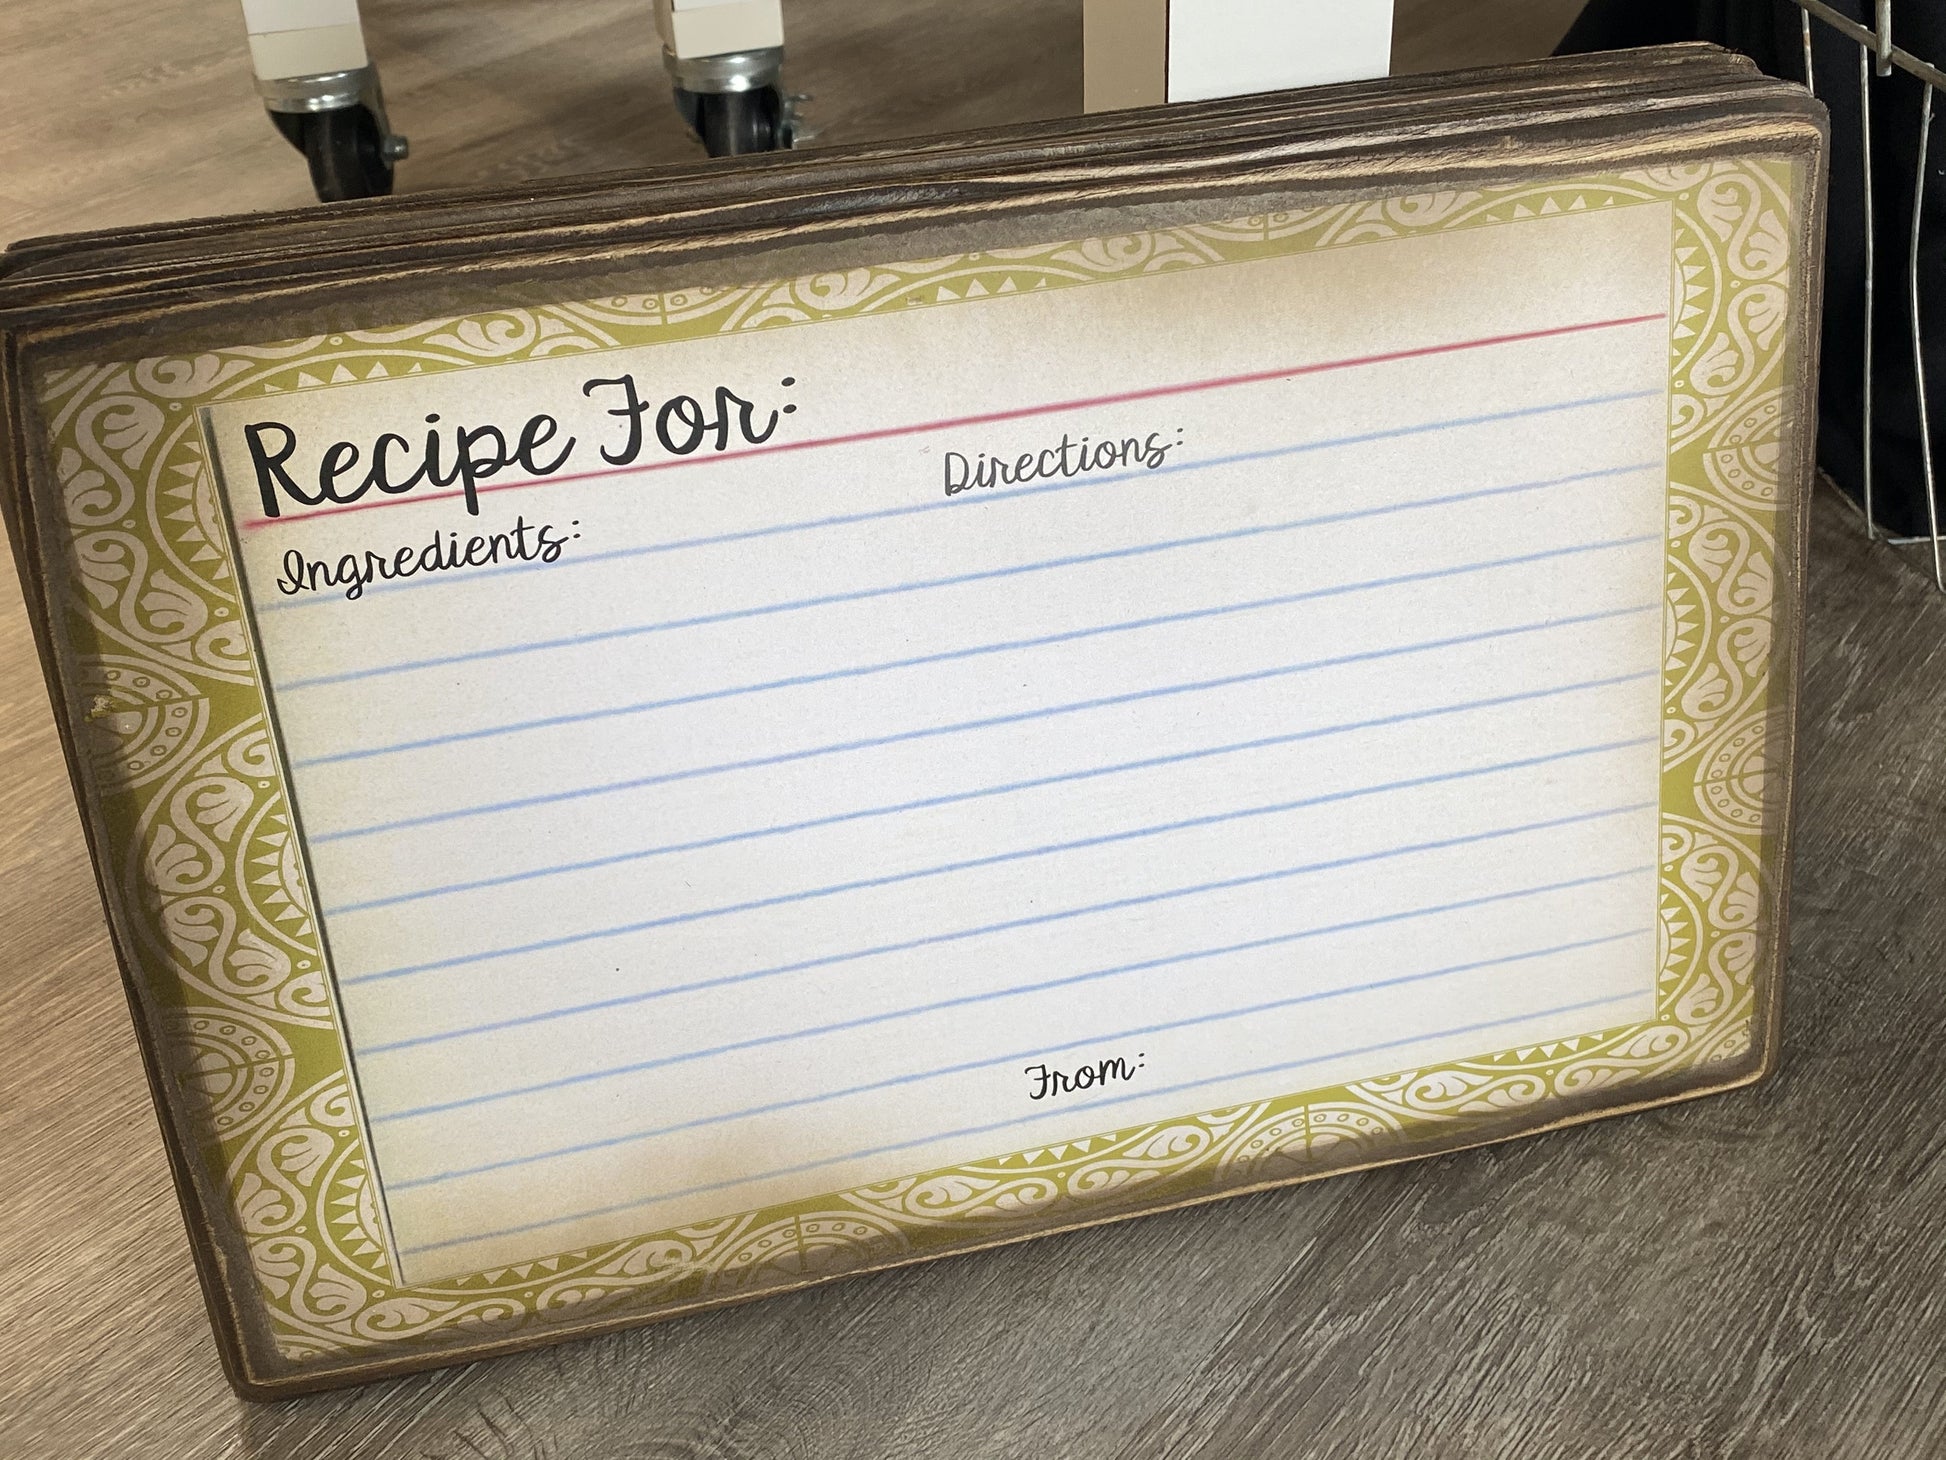 Recipe For:
Ingredients:
Directions:
From: